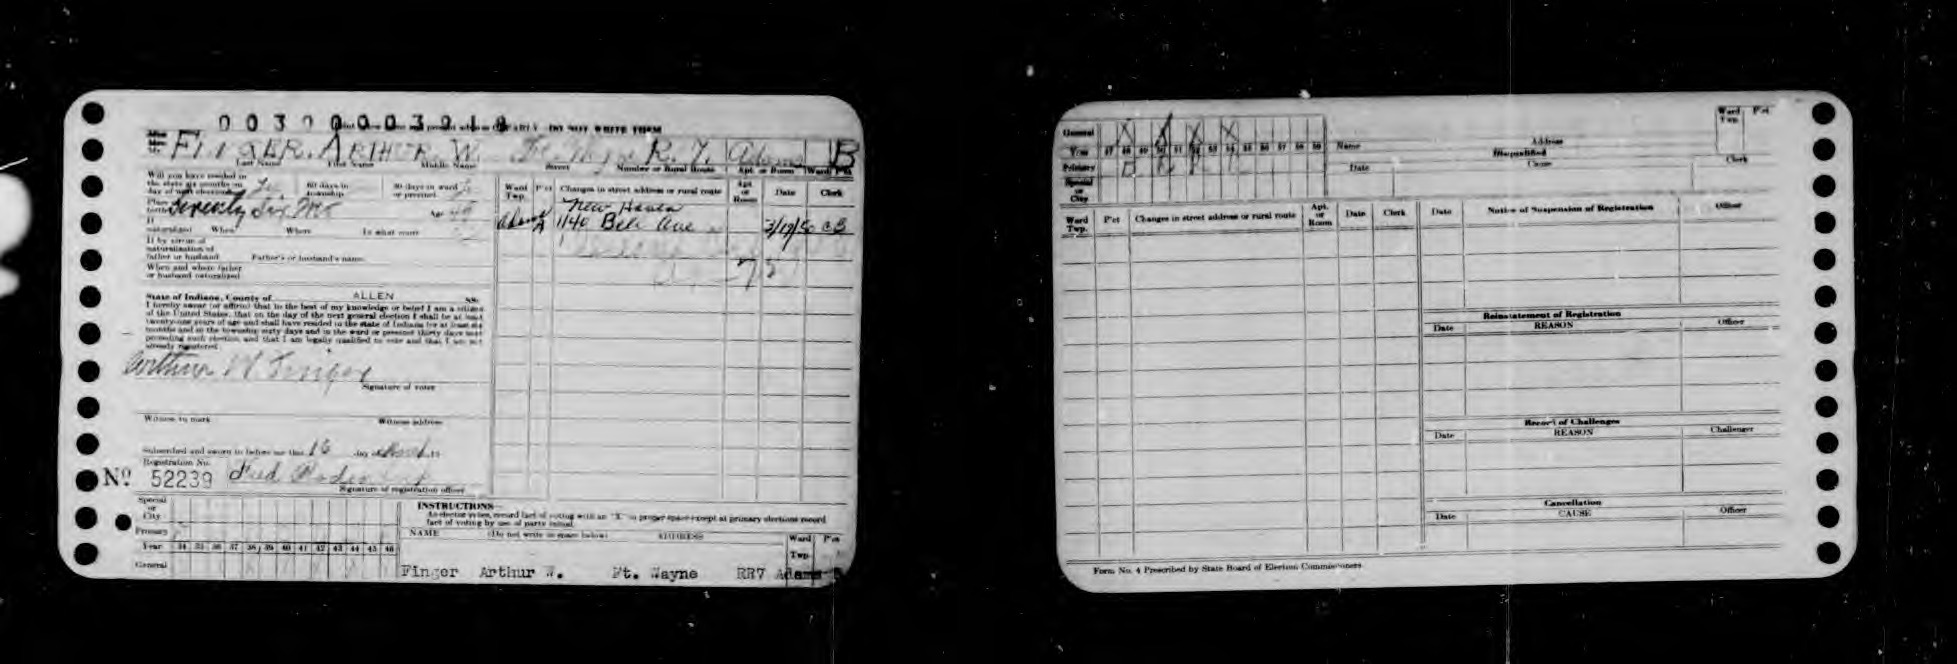 0 0 3 9 0 0 0 3 9 1 8
DO NOT WRITE THEM
FINGER, ARTHUR W. Ft. Wayne R. 7. Adams B
Last Name First Name Middle Name Street Number or Rural Route Apt. or Room Ward Pct
Will you have resided in
the state six months on 60 days in 30 days in ward
day of next election township or precinct
Age
naturalized When Where In what court
If by virtue of
naturalization of
father or husband Father's or husband's name
When and where father
or husband naturalized
Ward Twp. Pct Changes in street address or rural route Apt. or Room Date Clerk
New Haven
Adams A 1140 Bell Ave 3/19/50 CB
State of Indiana, County of ALLEN SS:
I hereby swear (or affirm) that to the best of my knowledge or belief I am a citizen
of the United States, that on the day of the next general election I shall be at least
twenty-one years of age and shall have resided in the state of Indiana for at least six
months and in the township sixty days and in the ward or precinct thirty days next
preceding such election and that I am legally qualified to vote and that I am not
already registered
Arthur W Finger
Signature of voter
Witness to mark Witness address
Subscribed and sworn to before me this 16 day
Registration No.
Nº 52239 Fred
Signature of registration officer
Special
or
City
Primary
Year 34 35 36 37 38 39 40 41 42 43 44 45 46
General
INSTRUCTIONS
As elector votes, record fact of voting with an "X" in proper space except at primary elections record
fact of voting by use of party initial
NAME (Do not write in space below) ADDRESS Ward Pct
Twp.
Finger Arthur W. Ft. Wayne RR7 Adams
General X X X X
Year 47 48 49 50 51 52 53 54 55 56 57 58 59
Primary
Special
or
City
Name Address
Disqualified
Date Cause Clerk
Ward Pct
Twp.
Ward Twp. Pct Changes in street address or rural route Apt. or Room Date Clerk
Date Notice of Suspension of Registration Officer
Reinstatement of Registration
Date REASON Officer
Record of Challenges
Date REASON Challenger
Cancellation
Date CAUSE Officer
Form No. 4 Prescribed by State Board of Election Commissioners